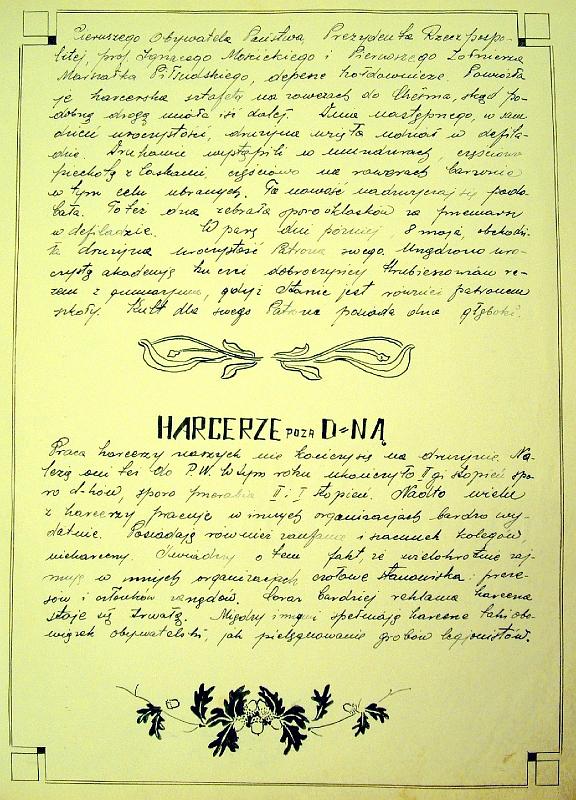 Pierwszego Obywatela Państwa, Prezydenta Rzeczpospo-
litej, prof. Ignacego Mościckiego i Pierwszego Żołnierza
Marszałka Piłsudskiego, depesze hołdownicze. Powiozła
je harcerska sztafeta na rowerach do Chełma, skąd po-
dobną drogą miała iść dalej. Dnia następnego, w sam
dzień uroczystości, drużyna wzięła udział w defila-
dzie. Druhowie wystąpili w mundurach, częściowo
piechotą z laskami, częściowo na rowerach barwnie
w tym celu ubranych. Ta nowość nadzwyczaj się podo-
bała. Toteż d-na zebrała sporo oklasków za przemarsz
w defiladzie. W parę dni później, 8 maja obchodzi-
ła drużyna uroczystość Patrona swego. Urządzono uro-
czystą akademię ku czci dobroczyńcy Hrubieszowian ra-
zem z gimnazjum, gdyż Stanic jest również patronem
szkoły. Kult dla swego Patrona posiada d-na głęboki.
HARCERZE POZA D-NĄ
Praca harcerzy naszych nie kończy się na drużynie. Na-
leżą oni też do P.W. W tym roku ukończyło II-gi stopień spo-
ro d-hów, sporo przerabia II i I stopień. Nadto wielu
z harcerzy pracuje w innych organizacjach bardzo wy-
datnie. Posiadają również zaufanie i szacunek kolegów,
nieharcerzy. Świadczy o tem fakt, że wielokrotnie zaj-
mują w innych organizacjach czołowe stanowiska: preze-
sów i członków zarządów. Coraz bardziej reklama harcerza
staje się trwałą. Między innymi spełniają harcerze taki obo-
wiązek obywatelski, jak pielęgnowanie grobów legjonistów.